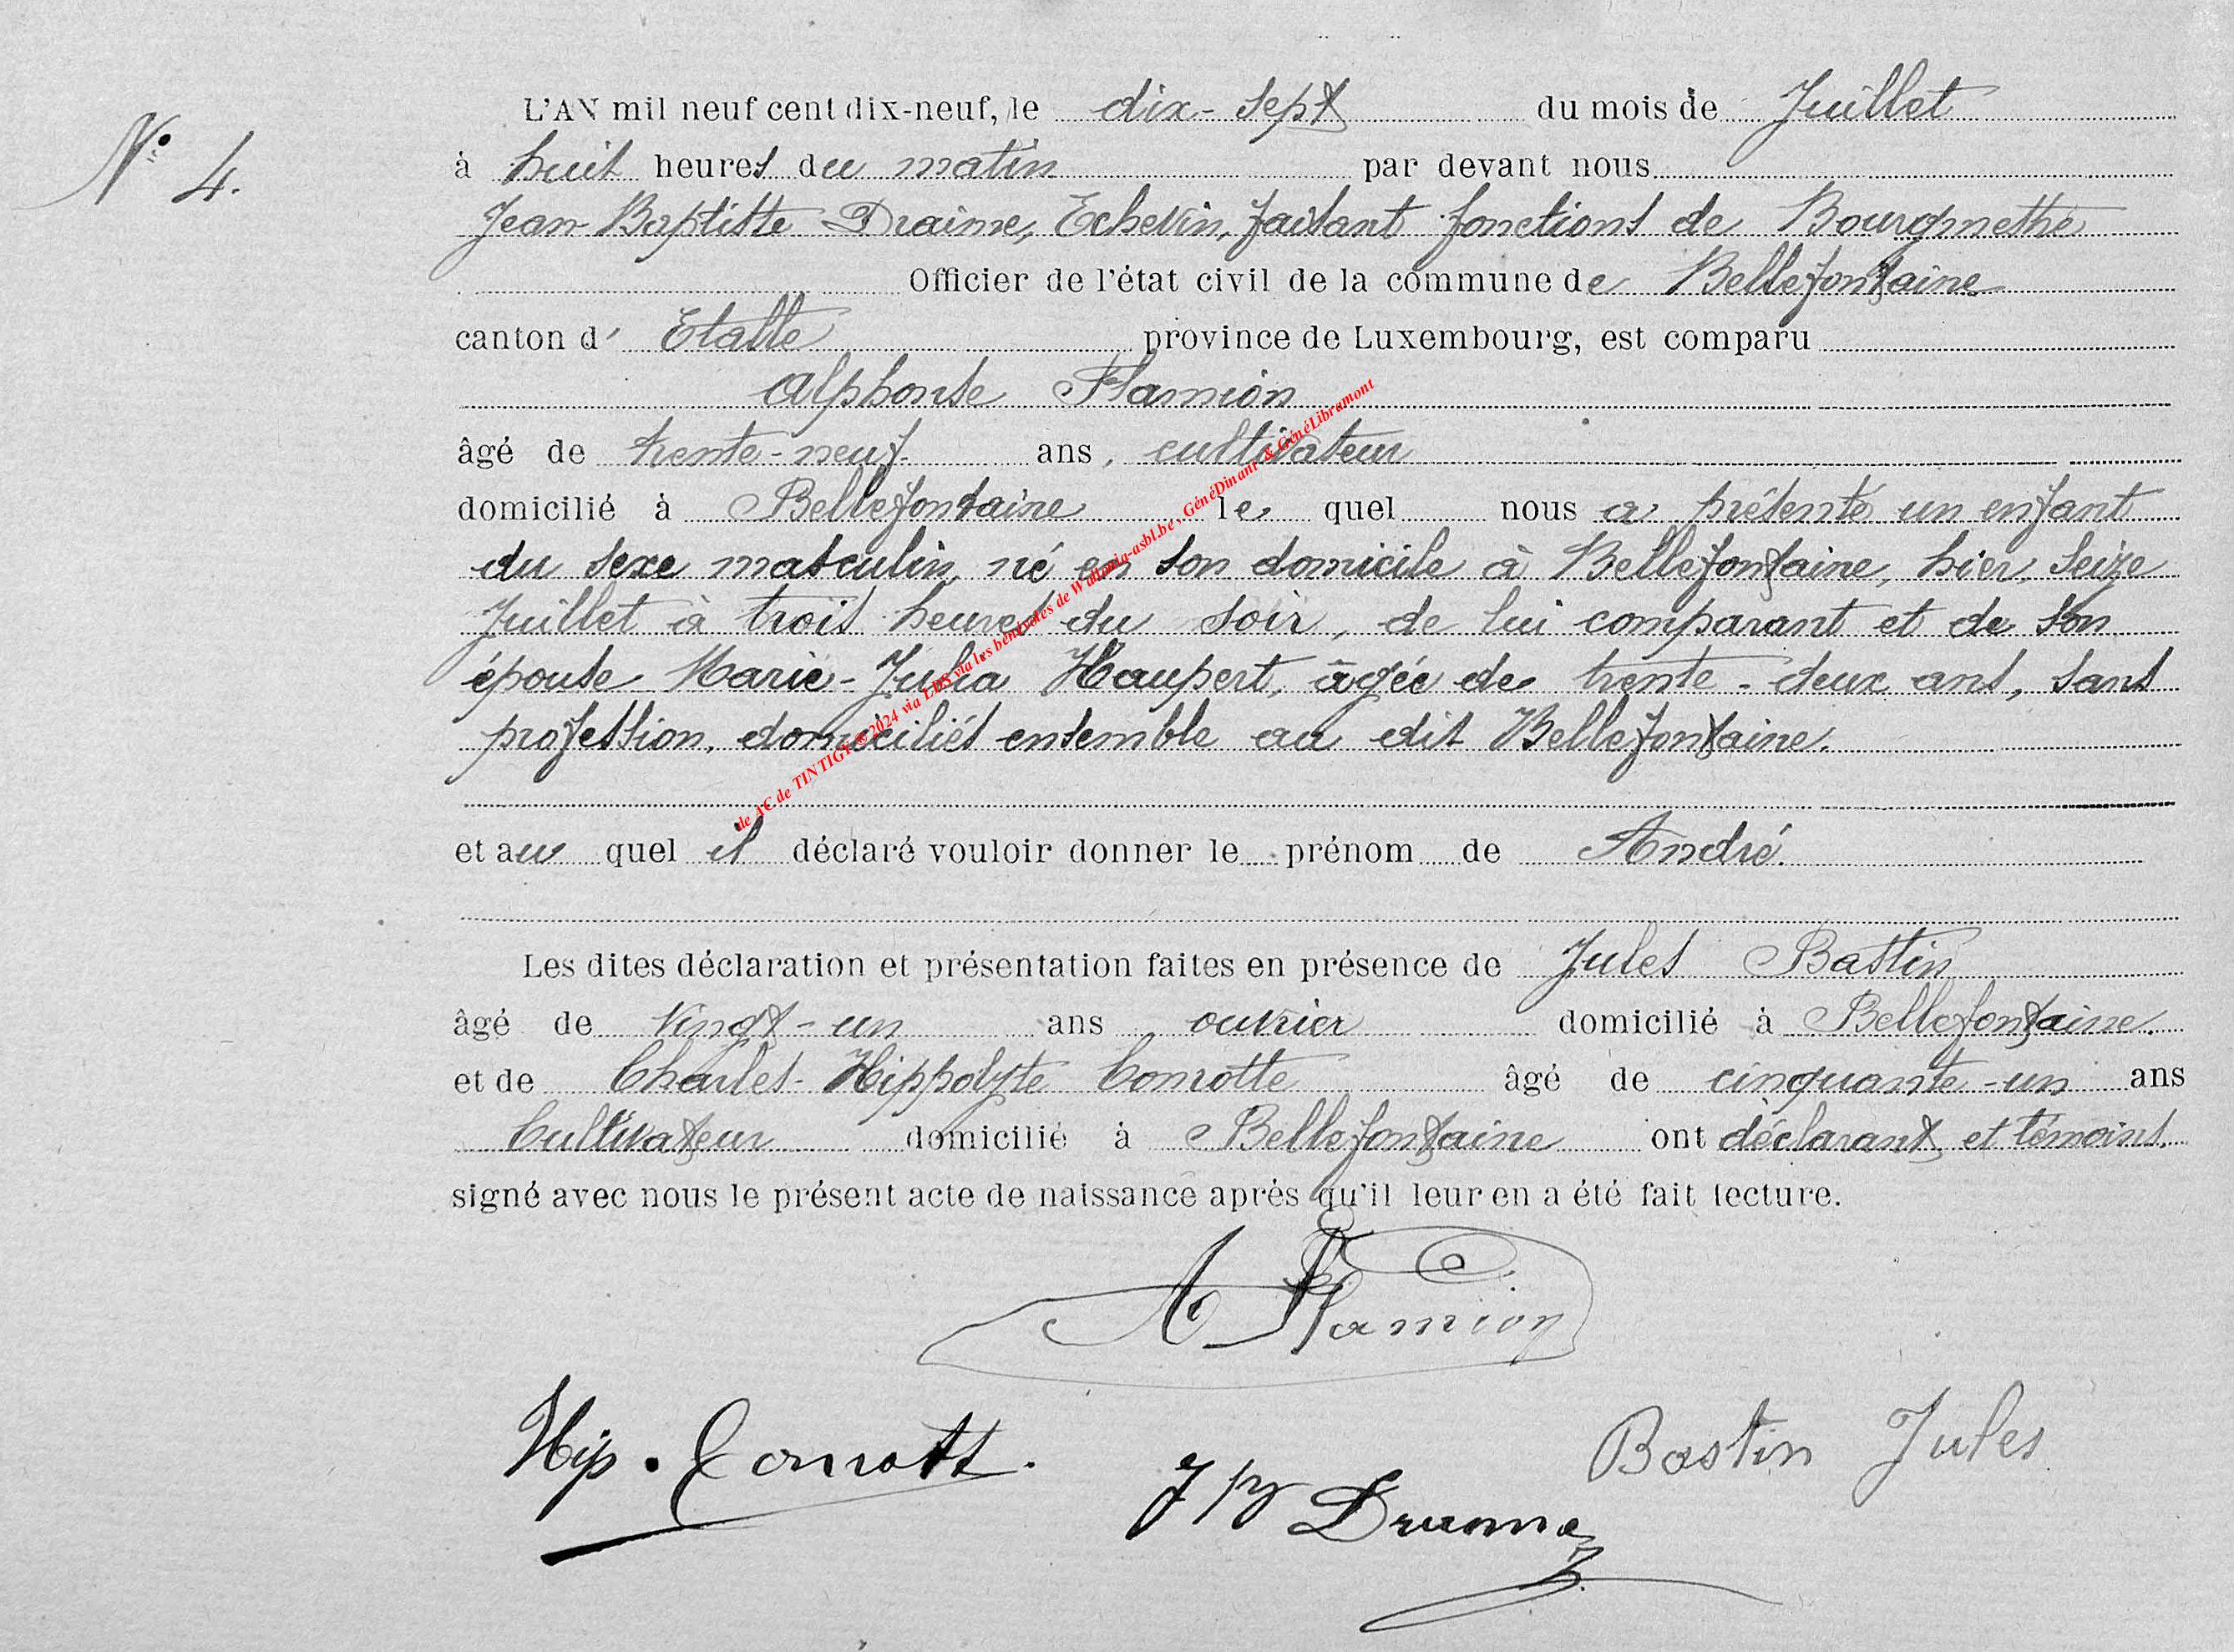 L'AN mil neuf cent dix-neuf, le dix-sept du mois de Juillet
N° 4.
à huit heures du matin par devant nous
Jean-Baptiste Draime, Echevin, faisant fonctions de Bourgmestre
Officier de l'état civil de la commune de Bellefontaine
canton d' Etalle province de Luxembourg, est comparu
Alphonse Flamion
âgé de trente-neuf ans, cultivateur
domicilié à Bellefontaine le quel nous a présenté un enfant
du sexe masculin, né en son domicile à Bellefontaine, hier, seize
Juillet à trois heures du soir, de lui comparant et de son
épouse Marie-Julia Haupert, âgée de trente-deux ans, sans
profession, domiciliés ensemble au dit Bellefontaine.
et au quel il déclaré vouloir donner le prénom de André.
Les dites déclaration et présentation faites en présence de Jules Bastin
âgé de vingt-un ans, ouvrier domicilié à Bellefontaine.
et de Charles-Hippolyte Cornotte âgé de cinquante-un ans
Cultivateur domicilié à Bellefontaine ont déclarant et témoins
signé avec nous le présent acte de naissance après qu'il leur en a été fait lecture.
A Flamion
Hip. Cornott
Bastin Jules
J B Draime
de AC de TINTIGY @2024 via LDS via les bénévoles de Wallonia-asbl.be, GénéDinant & GénéLibramont